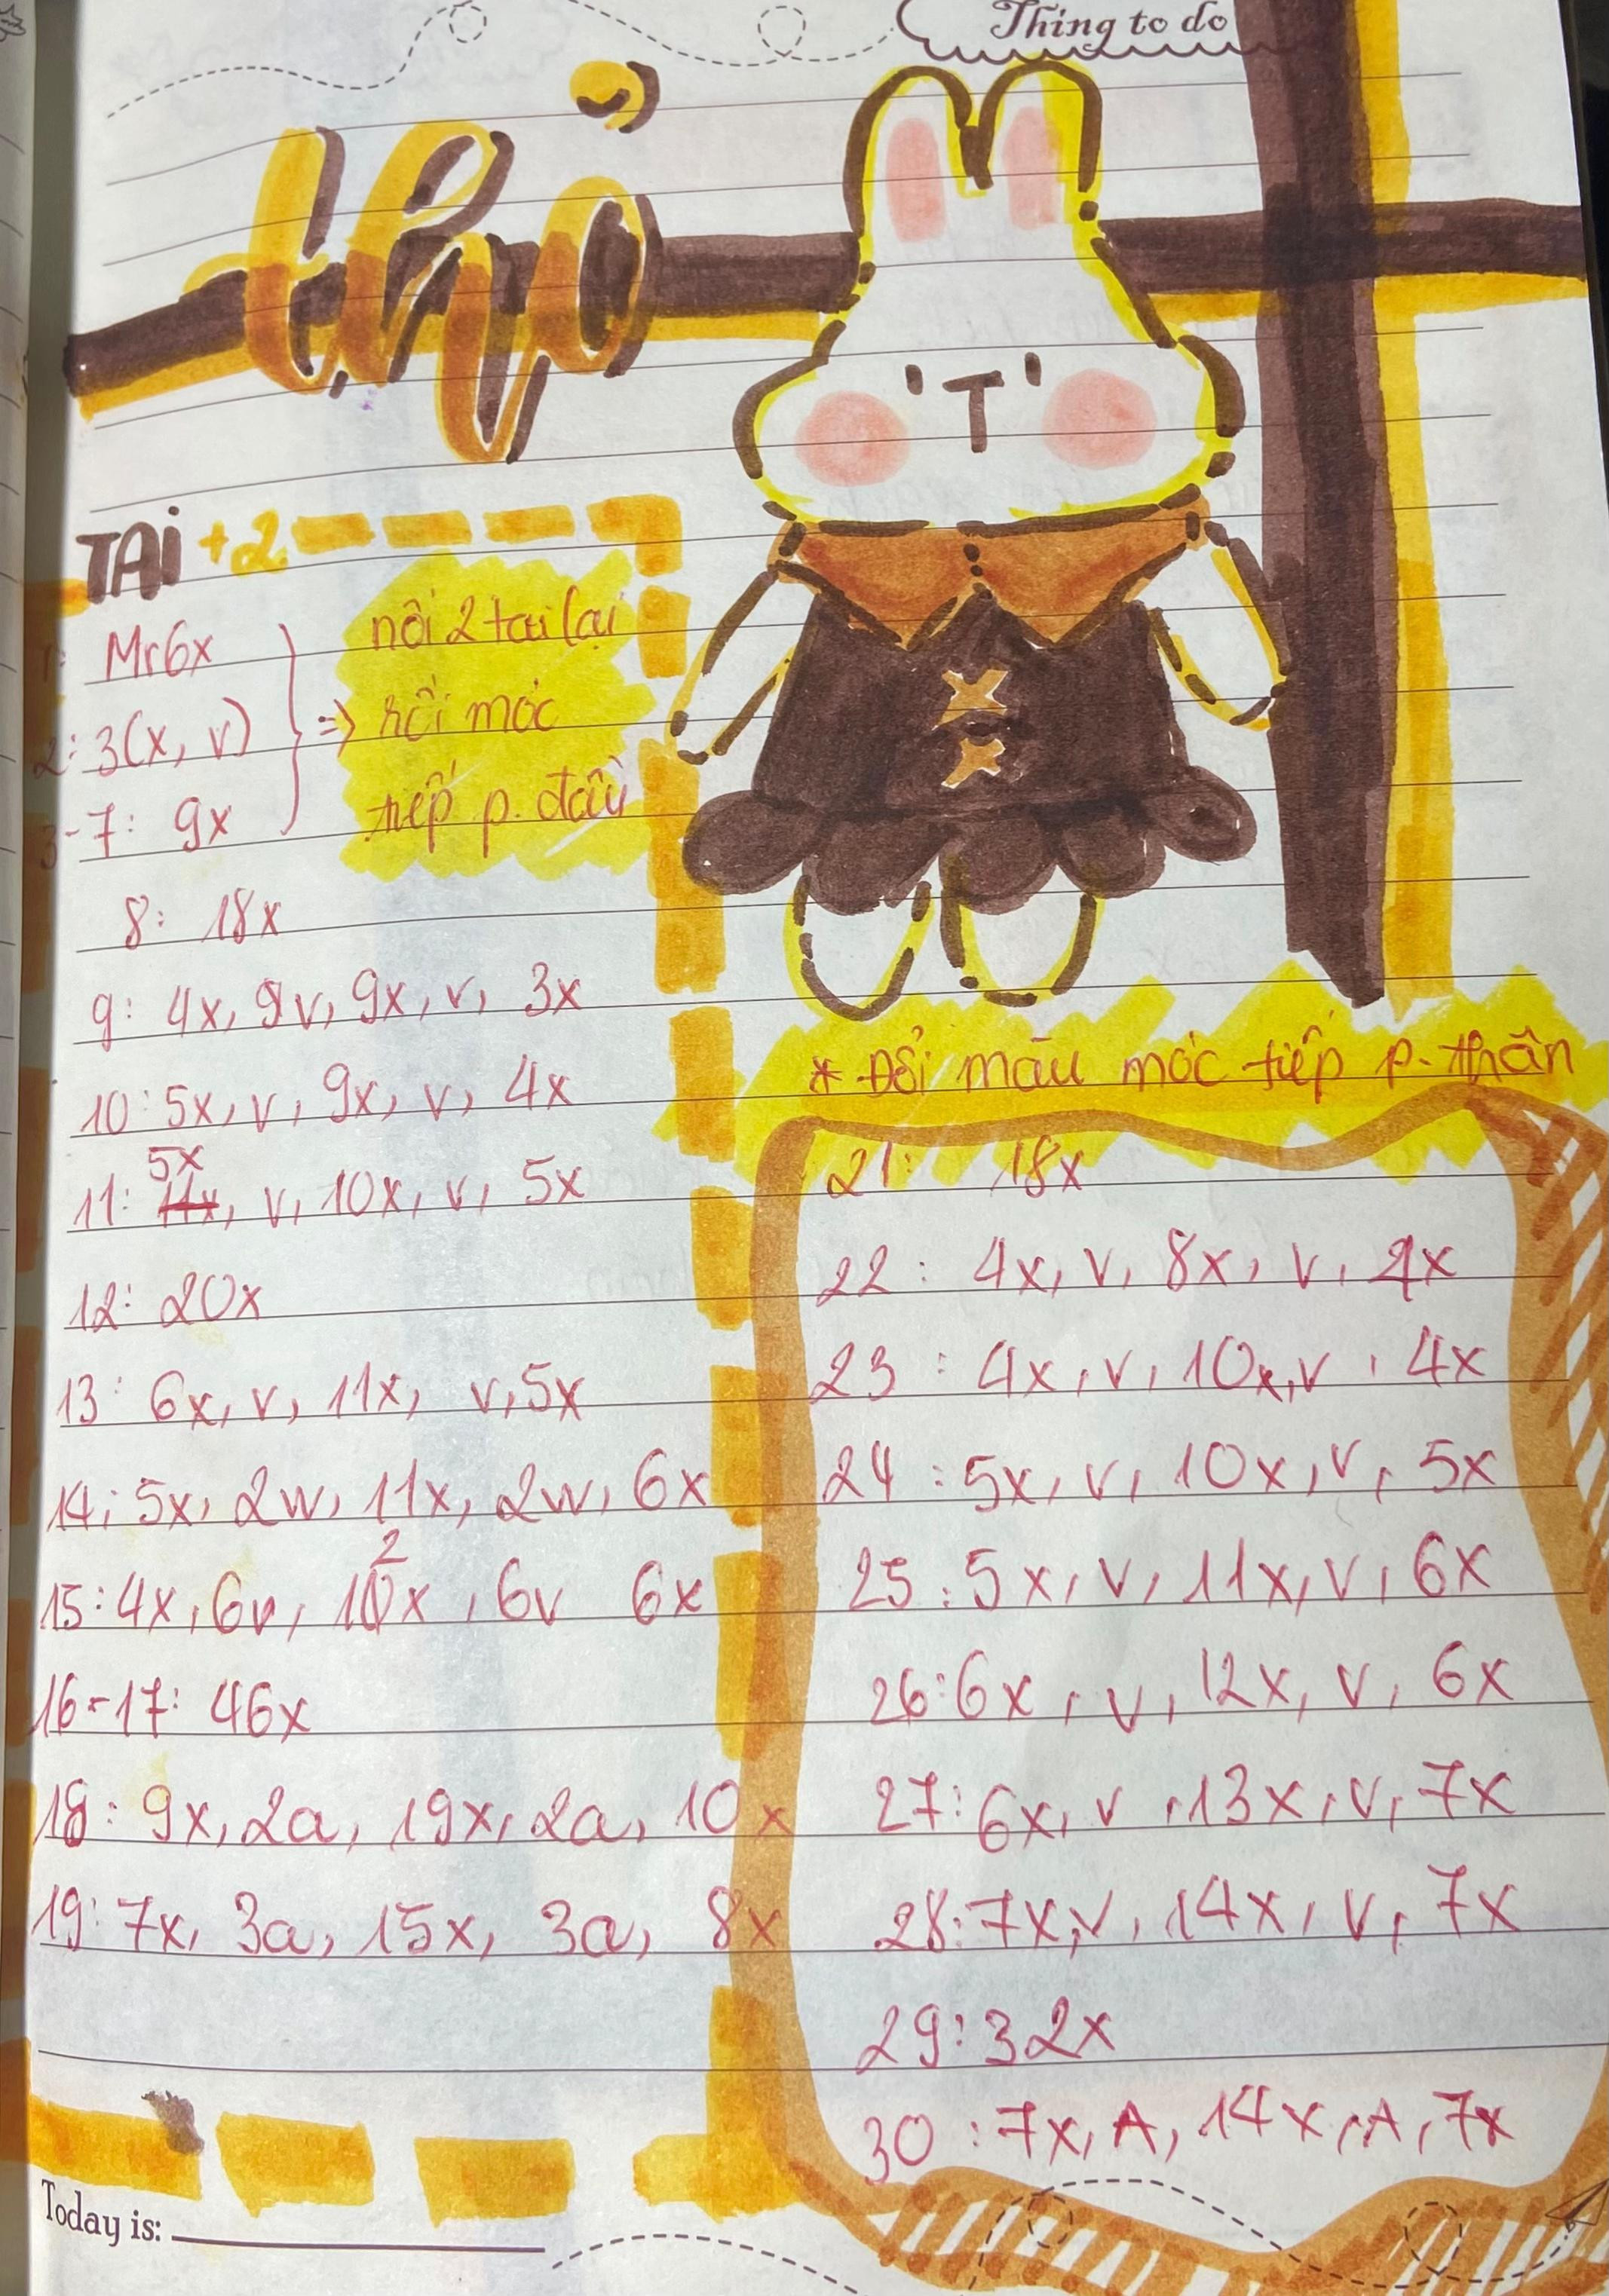 Thing to do
thỏ
TAi +2
1: Mr6x
2: 3(x, v)
3-7: 9x
=> nối 2 tai lại
rồi móc
tiếp p. đầu
8: 18x
9: 4x, v, 9x, v, 3x
10: 5x, v, 9x, v, 4x
11: 5x, v, 10x, v, 5x
12: 20x
13: 6x, v, 11x, v, 5x
14: 5x, 2w, 11x, 2w, 6x
15: 4x, 6v, 12x, 6v 6x
16-17: 46x
18: 9x, 2a, 19x, 2a, 10x
19: 7x, 3a, 15x, 3a, 8x
* Đổi màu móc tiếp p. thân
21: 18x
22: 4x, v, 8x, v, 4x
23: 4x, v, 10x, v, 4x
24: 5x, v, 10x, v, 5x
25: 5x, v, 11x, v, 6x
26: 6x, v, 12x, v, 6x
27: 6x, v, 13x, v, 7x
28: 7x, v, 14x, v, 7x
29: 32x
30: 7x, A, 14x, A, 7x
Today is: